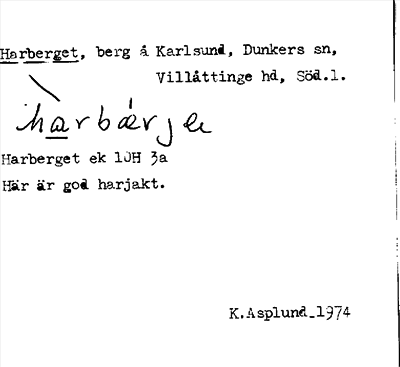 Harberget, berg å Karlsund, Dunkers sn,
Villåttinge hd, Söd.l.
hàrbǽrje
Harberget ek 10H 3a
Här är god harjakt.
K.Asplund 1974